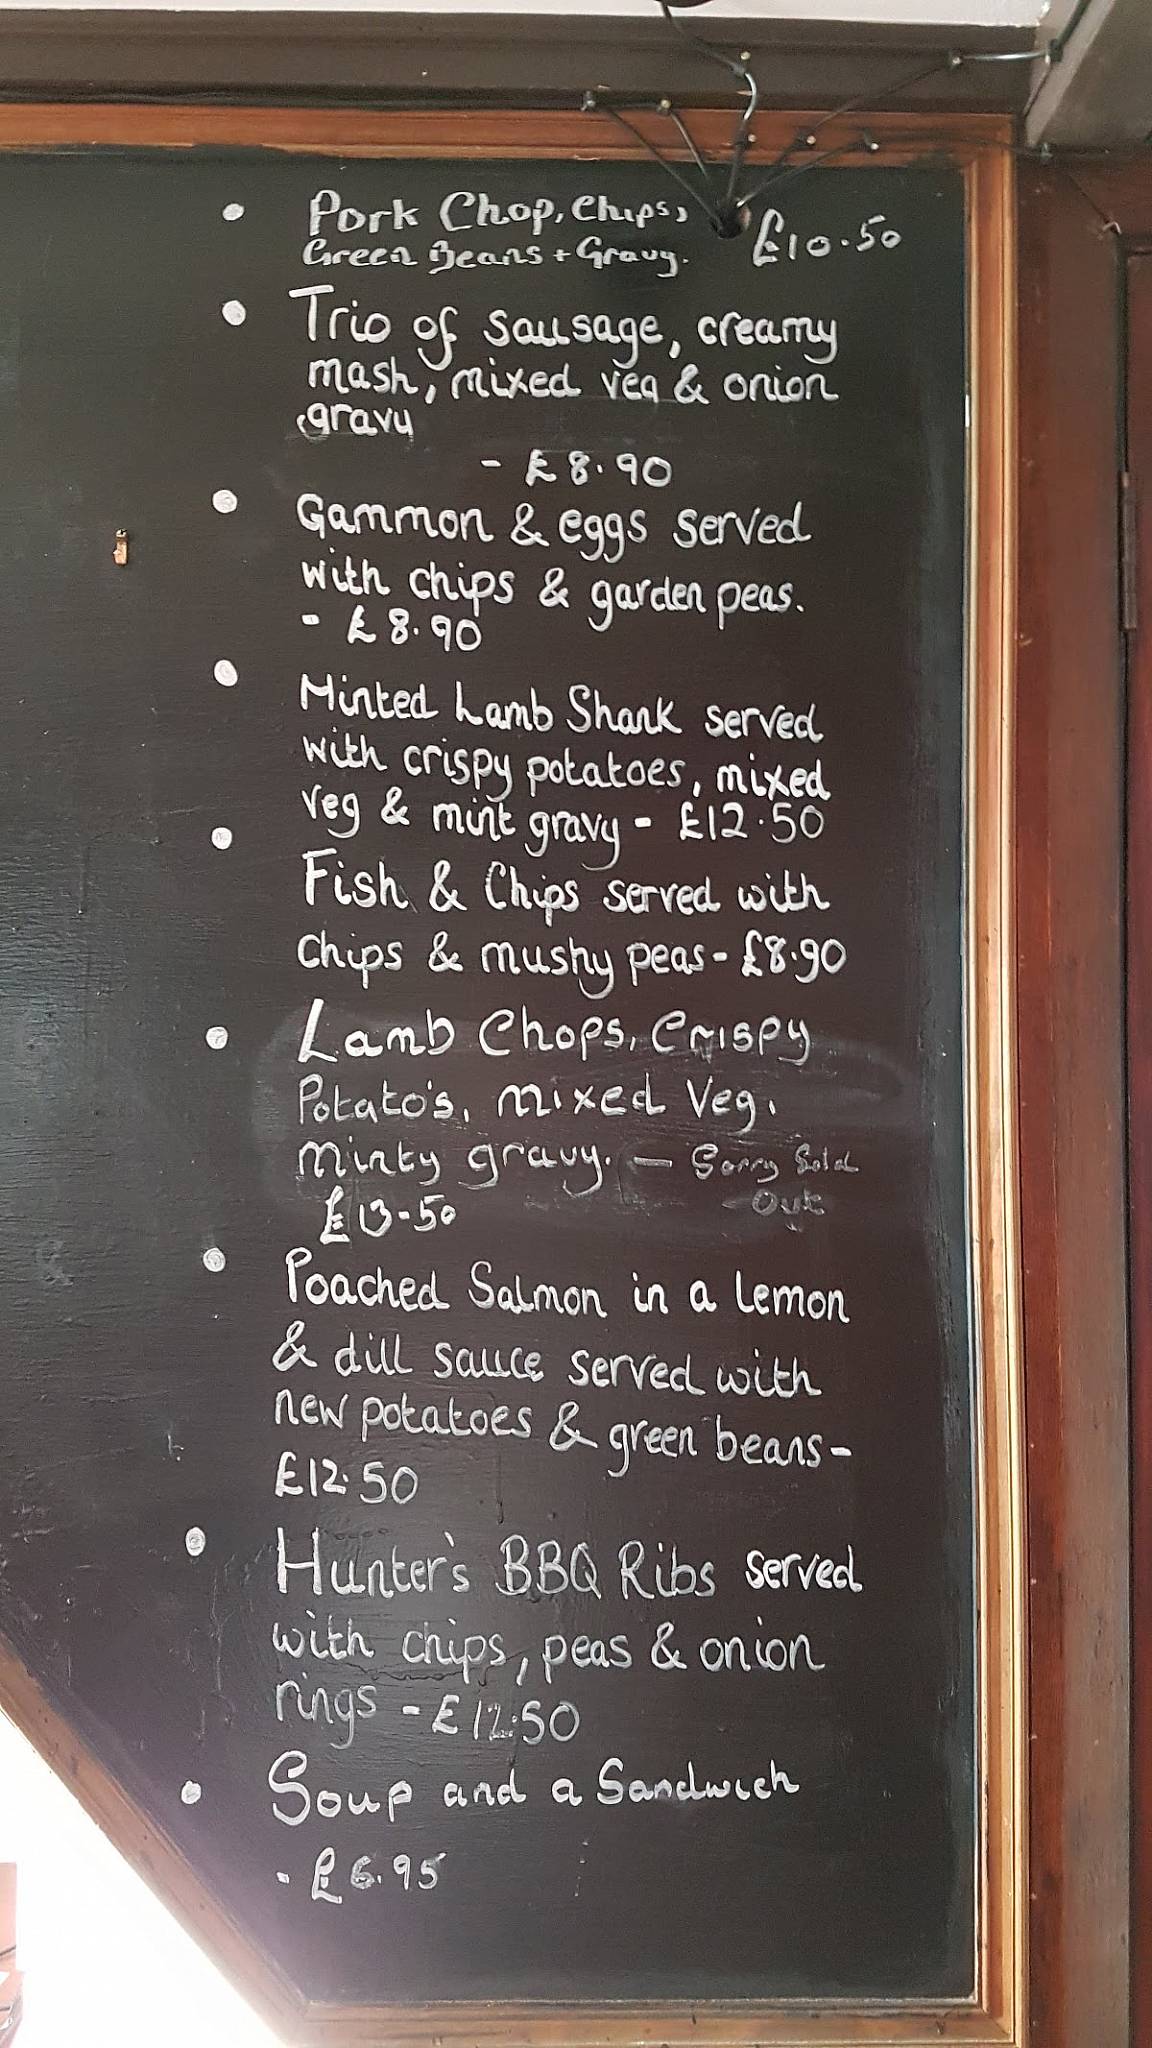 • Pork Chop, Chips, £10.50
Green Beans + Gravy.
• Trio of sausage, creamy
mash, mixed veg & onion
gravy
- £8.90
• Gammon & eggs served
with chips & garden peas.
- £8.90
• Minted Lamb Shank served
with crispy potatoes, mixed
veg & mint gravy - £12.50
• Fish & Chips served with
chips & mushy peas - £8.90
• Lamb Chops, Crispy
Potato's, mixed Veg,
minty gravy. — Sorry Sold
Out
£13-50
• Poached Salmon in a lemon
& dill sauce served with
new potatoes & green beans -
£12.50
• Hunter's BBQ Ribs served
with chips, peas & onion
rings - £12.50
• Soup and a Sandwich
- £6.95